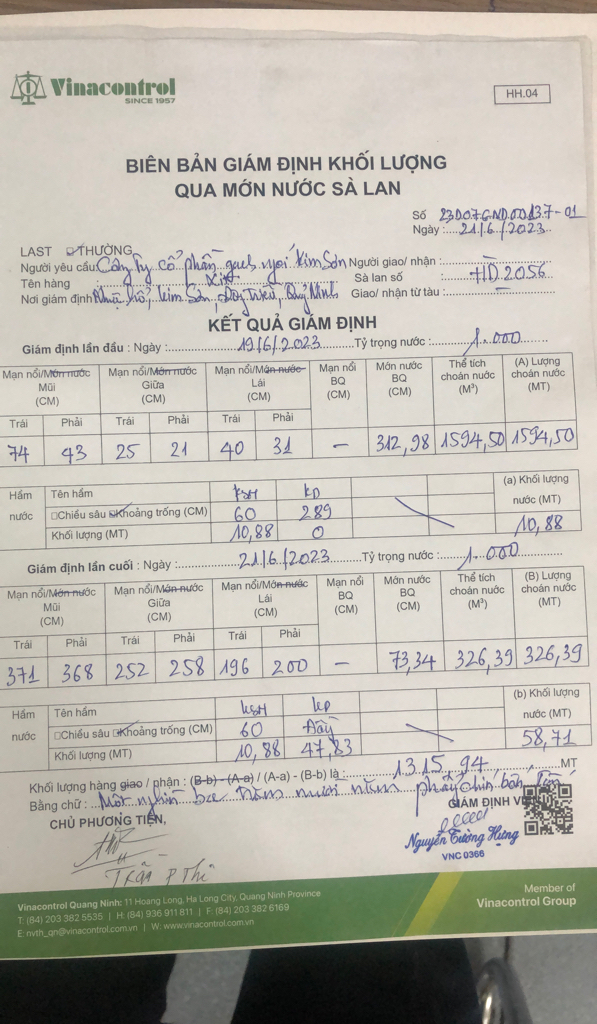 Vinacontrol
SINCE 1957
HH.04
BIÊN BẢN GIÁM ĐỊNH KHỐI LƯỢNG
QUA MỚN NƯỚC SÀ LAN
Số 23D07GND00137-01
Ngày : 21/6/2023
LAST THƯỜNG
Người yêu cầu: Công ty cổ phần gạch ngói Kim Sơn Người giao/ nhận : –
Tên hàng Sà lan số : HD 2056
Nơi giám định Kim Sơn, Giao/ nhận từ tàu : –
KẾT QUẢ GIÁM ĐỊNH
Giám định lần đầu : Ngày : 19/6/2023 Tỷ trọng nước : 1.000
Mạn nổi/Món nước Mũi (CM) Mạn nổi/Món nước Giữa (CM) Mạn nổi/Món nước Lái (CM) Mạn nổi BQ (CM) Món nước BQ (CM) Thể tích choán nước (M³) (A) Lượng choán nước (MT)
Trái Phải Trái Phải Trái Phải
74 43 25 21 40 31 – 312,98 1594,50 1594,50
Hầm nước Tên hầm KSH KD (a) Khối lượng nước (MT)
Chiều sâu Khoảng trống (CM) 60 289
Khối lượng (MT) 10,88 0 10,88
Giám định lần cuối : Ngày : 21/6/2023 Tỷ trọng nước : 1.000
Mạn nổi/Món nước Mũi (CM) Mạn nổi/Món nước Giữa (CM) Mạn nổi/Món nước Lái (CM) Mạn nổi BQ (CM) Món nước BQ (CM) Thể tích choán nước (M³) (B) Lượng choán nước (MT)
Trái Phải Trái Phải Trái Phải
371 368 252 258 196 200 – 73,34 326,39 326,39
Hầm nước Tên hầm KSH KD (b) Khối lượng nước (MT)
Chiều sâu Khoảng trống (CM) 60 Đầy
Khối lượng (MT) 10,88 47,83 58,71
Khối lượng hàng giao / phận : (B-b) - (A-a) / (A-a) - (B-b) là : 1315,94 MT
Bằng chữ : Một nghìn ba trăm mười năm phẩy chín bốn tấn
CHỦ PHƯƠNG TIỆN, GIÁM ĐỊNH V
Trần P Thi
Nguyễn Tường Hưng
VNC 0366
Vinacontrol Quang Ninh: 11 Hoang Long, Ha Long City, Quang Ninh Province
T: (84) 203 382 5535 | H: (84) 936 911 811 | F: (84) 203 382 6169
E: nvth_qn@vinacontrol.com.vn | W: www.vinacontrol.com.vn
Member of
Vinacontrol Group